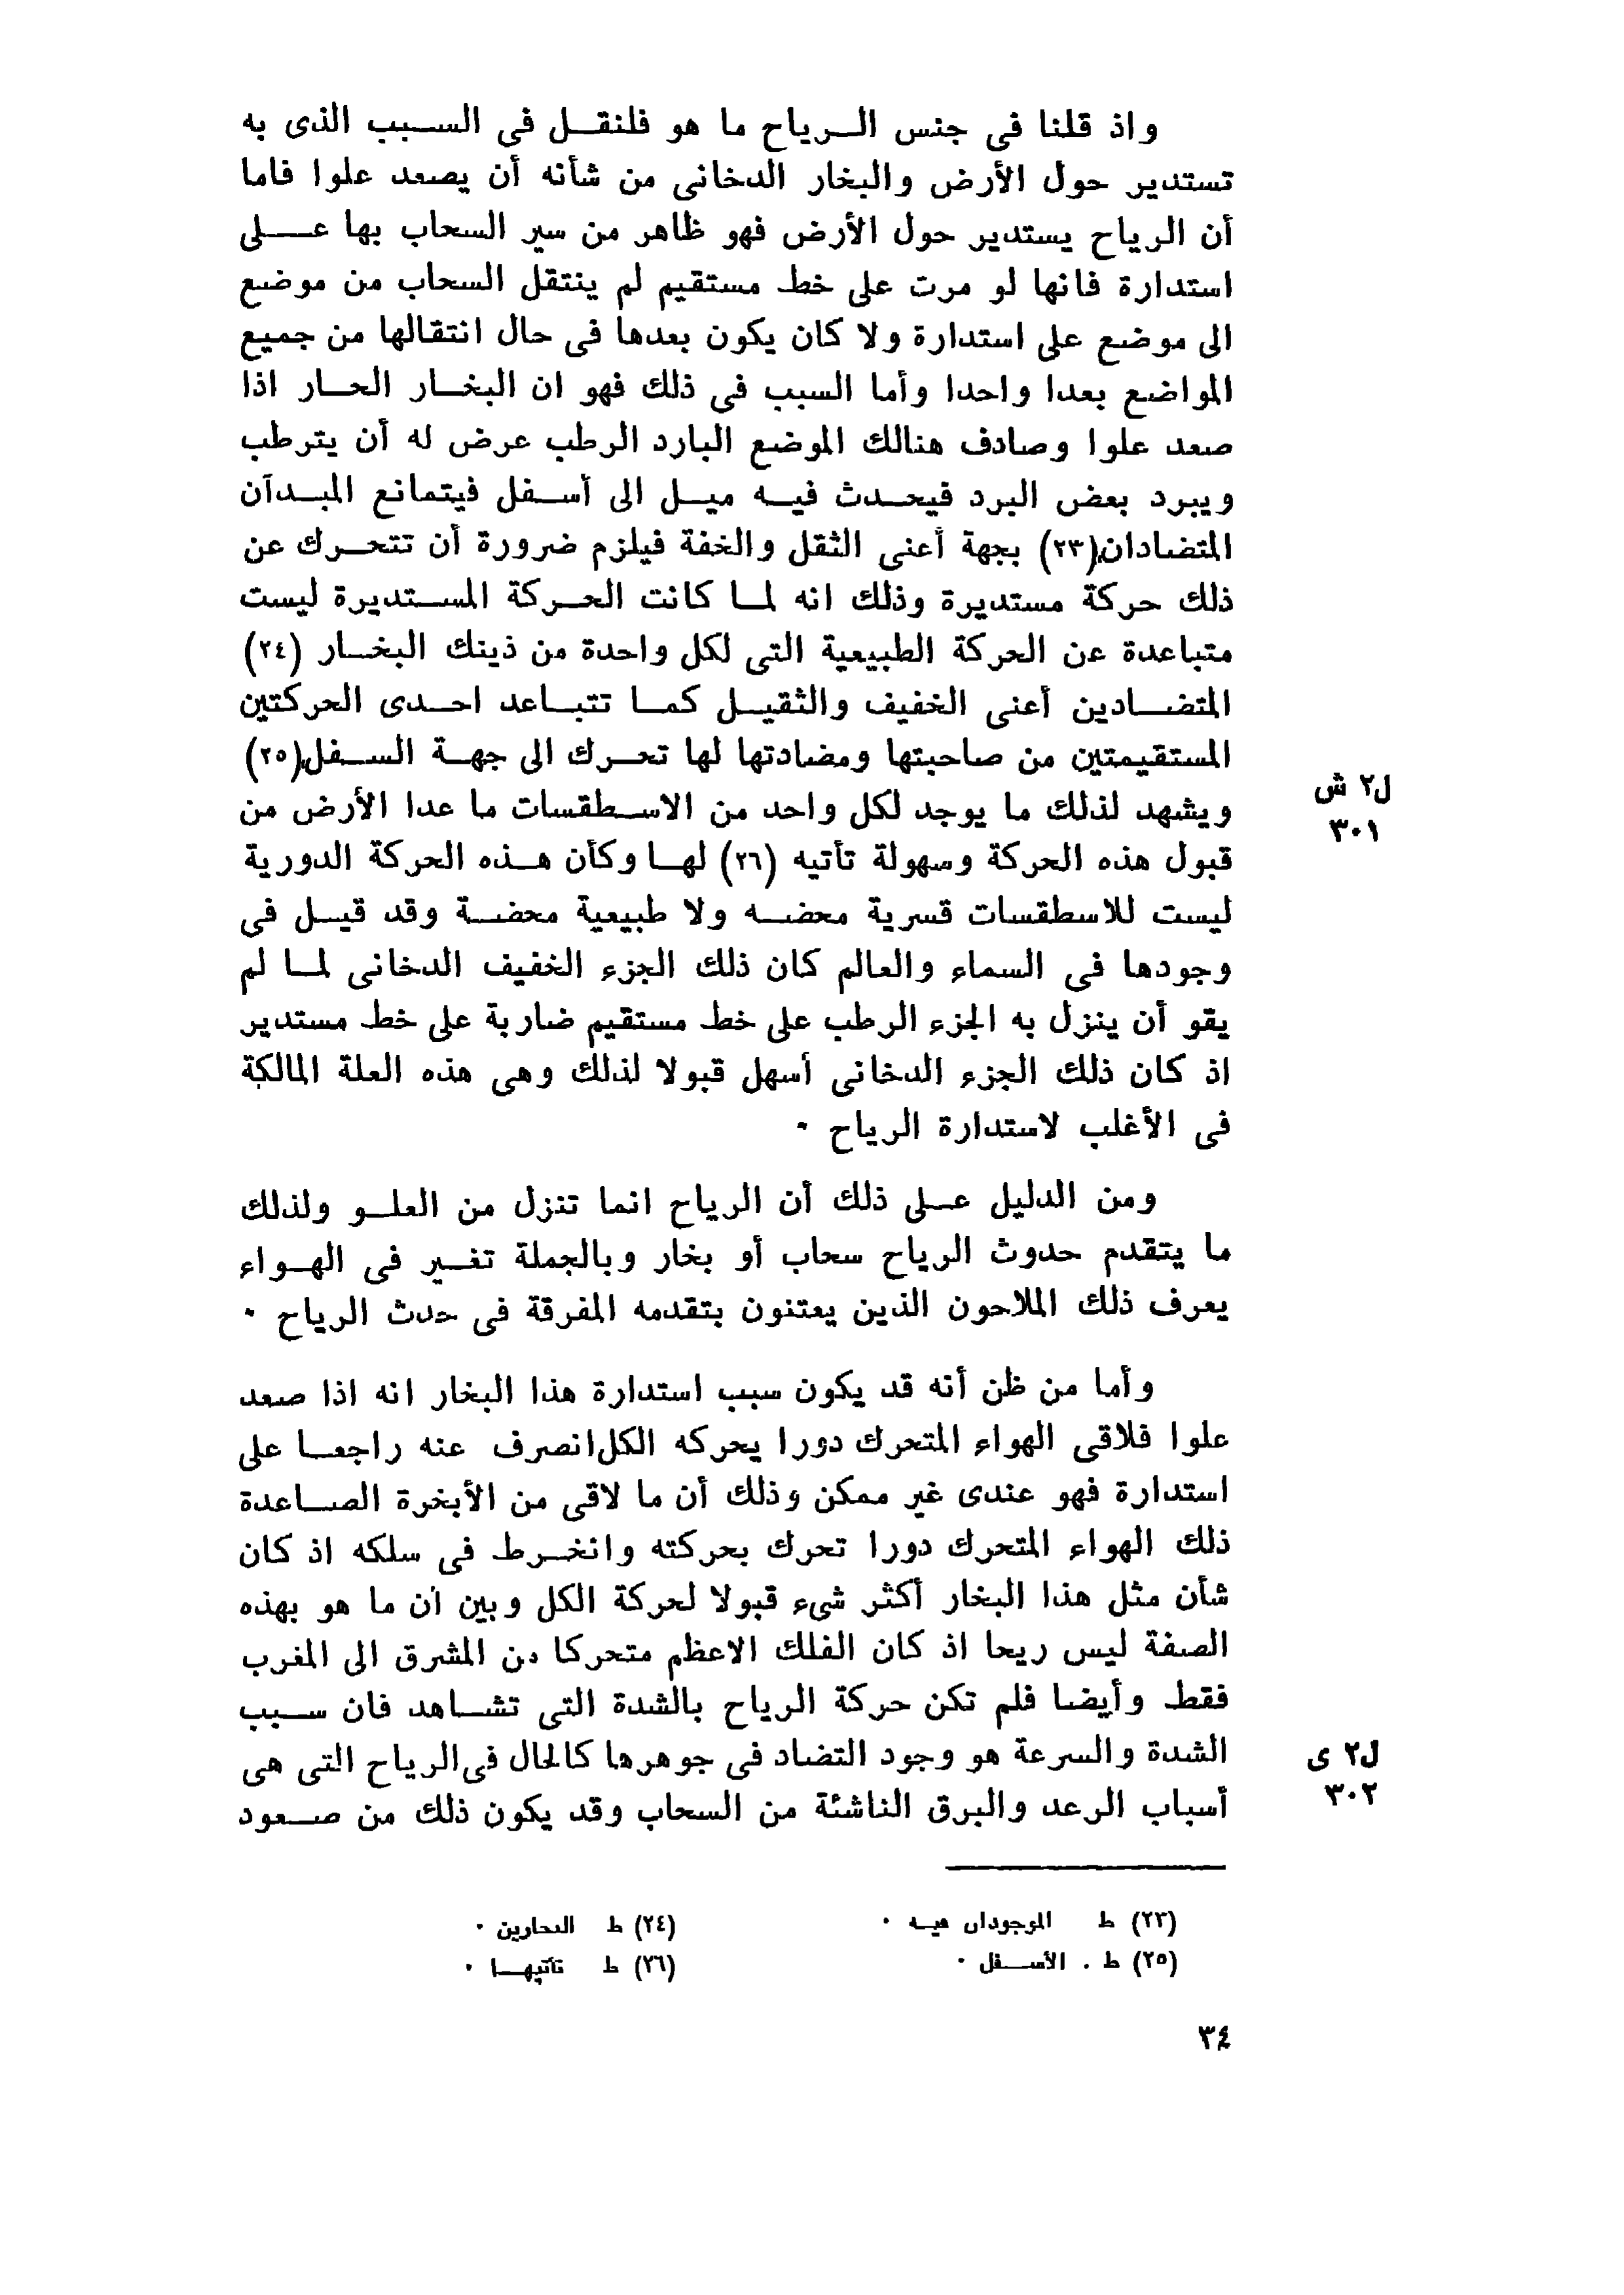 واذ قلنا فى جنس الرياح ما هو فلنقل فى السبب الذى به
تستدير حول الأرض والبخار الدخانى من شأنه أن يصعد علوا فاما
أن الرياح يستدير حول الأرض فهو ظاهر من سير السحاب بها على
استدارة فانها لو مرت على خط مستقيم لم ينتقل السحاب من موضع
الى موضع على استدارة ولا كان يكون بعدها فى حال انتقالها من جميع
المواضع بعدا واحدا وأما السبب فى ذلك فهو ان البخار الحار اذا
صعد علوا وصادف هنالك الموضع البارد الرطب عرض له أن يترطب
ويبرد بعض البرد فيحدث فيه ميل الى أسفل فيتمانع المبدآن
المتضادان(٢٣) بجهة أعنى الثقل والخفة فيلزم ضرورة أن تتحرك عن
ذلك حركة مستديرة وذلك انه لما كانت الحركة المستديرة ليست
متباعدة عن الحركة الطبيعية التى لكل واحدة من ذينك البخار (٢٤)
المتضادين أعنى الخفيف والثقيل كما تتباعد احدى الحركتين
المستقيمتين من صاحبتها ومضادتها لها تحرك الى جهة السفل(٢٥)
ل٢ ش
٣٠١
ويشهد لذلك ما يوجد لكل واحد من الاسطقسات ما عدا الأرض من
قبول هذه الحركة وسهولة تأتيه (٢٦) لها وكأن هذه الحركة الدورية
ليست للاسطقسات قسرية محضه ولا طبيعية محضة وقد قيل فى
وجودها فى السماء والعالم كان ذلك الجزء الخفيف الدخانى لما لم
يقو أن ينزل به الجزء الرطب على خط مستقيم ضاربة على خط مستدير
اذ كان ذلك الجزء الدخانى أسهل قبولا لذلك وهى هذه العلة المالكة
فى الأغلب لاستدارة الرياح ·
ومن الدليل على ذلك أن الرياح انما تنزل من العلو ولذلك
ما يتقدم حدوث الرياح سحاب أو بخار وبالجملة تغير فى الهواء
يعرف ذلك الملاحون الذين يعتنون بتقدمه المفرقة فى حدث الرياح ·
وأما من ظن أنه قد يكون سبب استدارة هذا البخار انه اذا صعد
علوا فلاقى الهواء المتحرك دورا يحركه الكل انصرف عنه راجعا على
استدارة فهو عندى غير ممكن وذلك أن ما لاقى من الأبخرة الصاعدة
ذلك الهواء المتحرك دورا تحرك بحركته وانخرط فى سلكه اذ كان
شأن مثل هذا البخار أكثر شىء قبولا لحركة الكل وبين أن ما هو بهذه
الصفة ليس ريحا اذ كان الفلك الاعظم متحركا من المشرق الى المغرب
فقط وأيضا فلم تكن حركة الرياح بالشدة التى تشاهد فان سبب
الشدة والسرعة هو وجود التضاد فى جوهرها كالحال فى الرياح التى هى
ل٢ ى
٣٠٢
أسباب الرعد والبرق الناشئة من السحاب وقد يكون ذلك من صعود
(٢٣) ط الموجودان فيه ·
(٢٤) ط البخارين ·
(٢٥) ط . الأسفل ·
(٢٦) ط تأتيها ·
٣٤